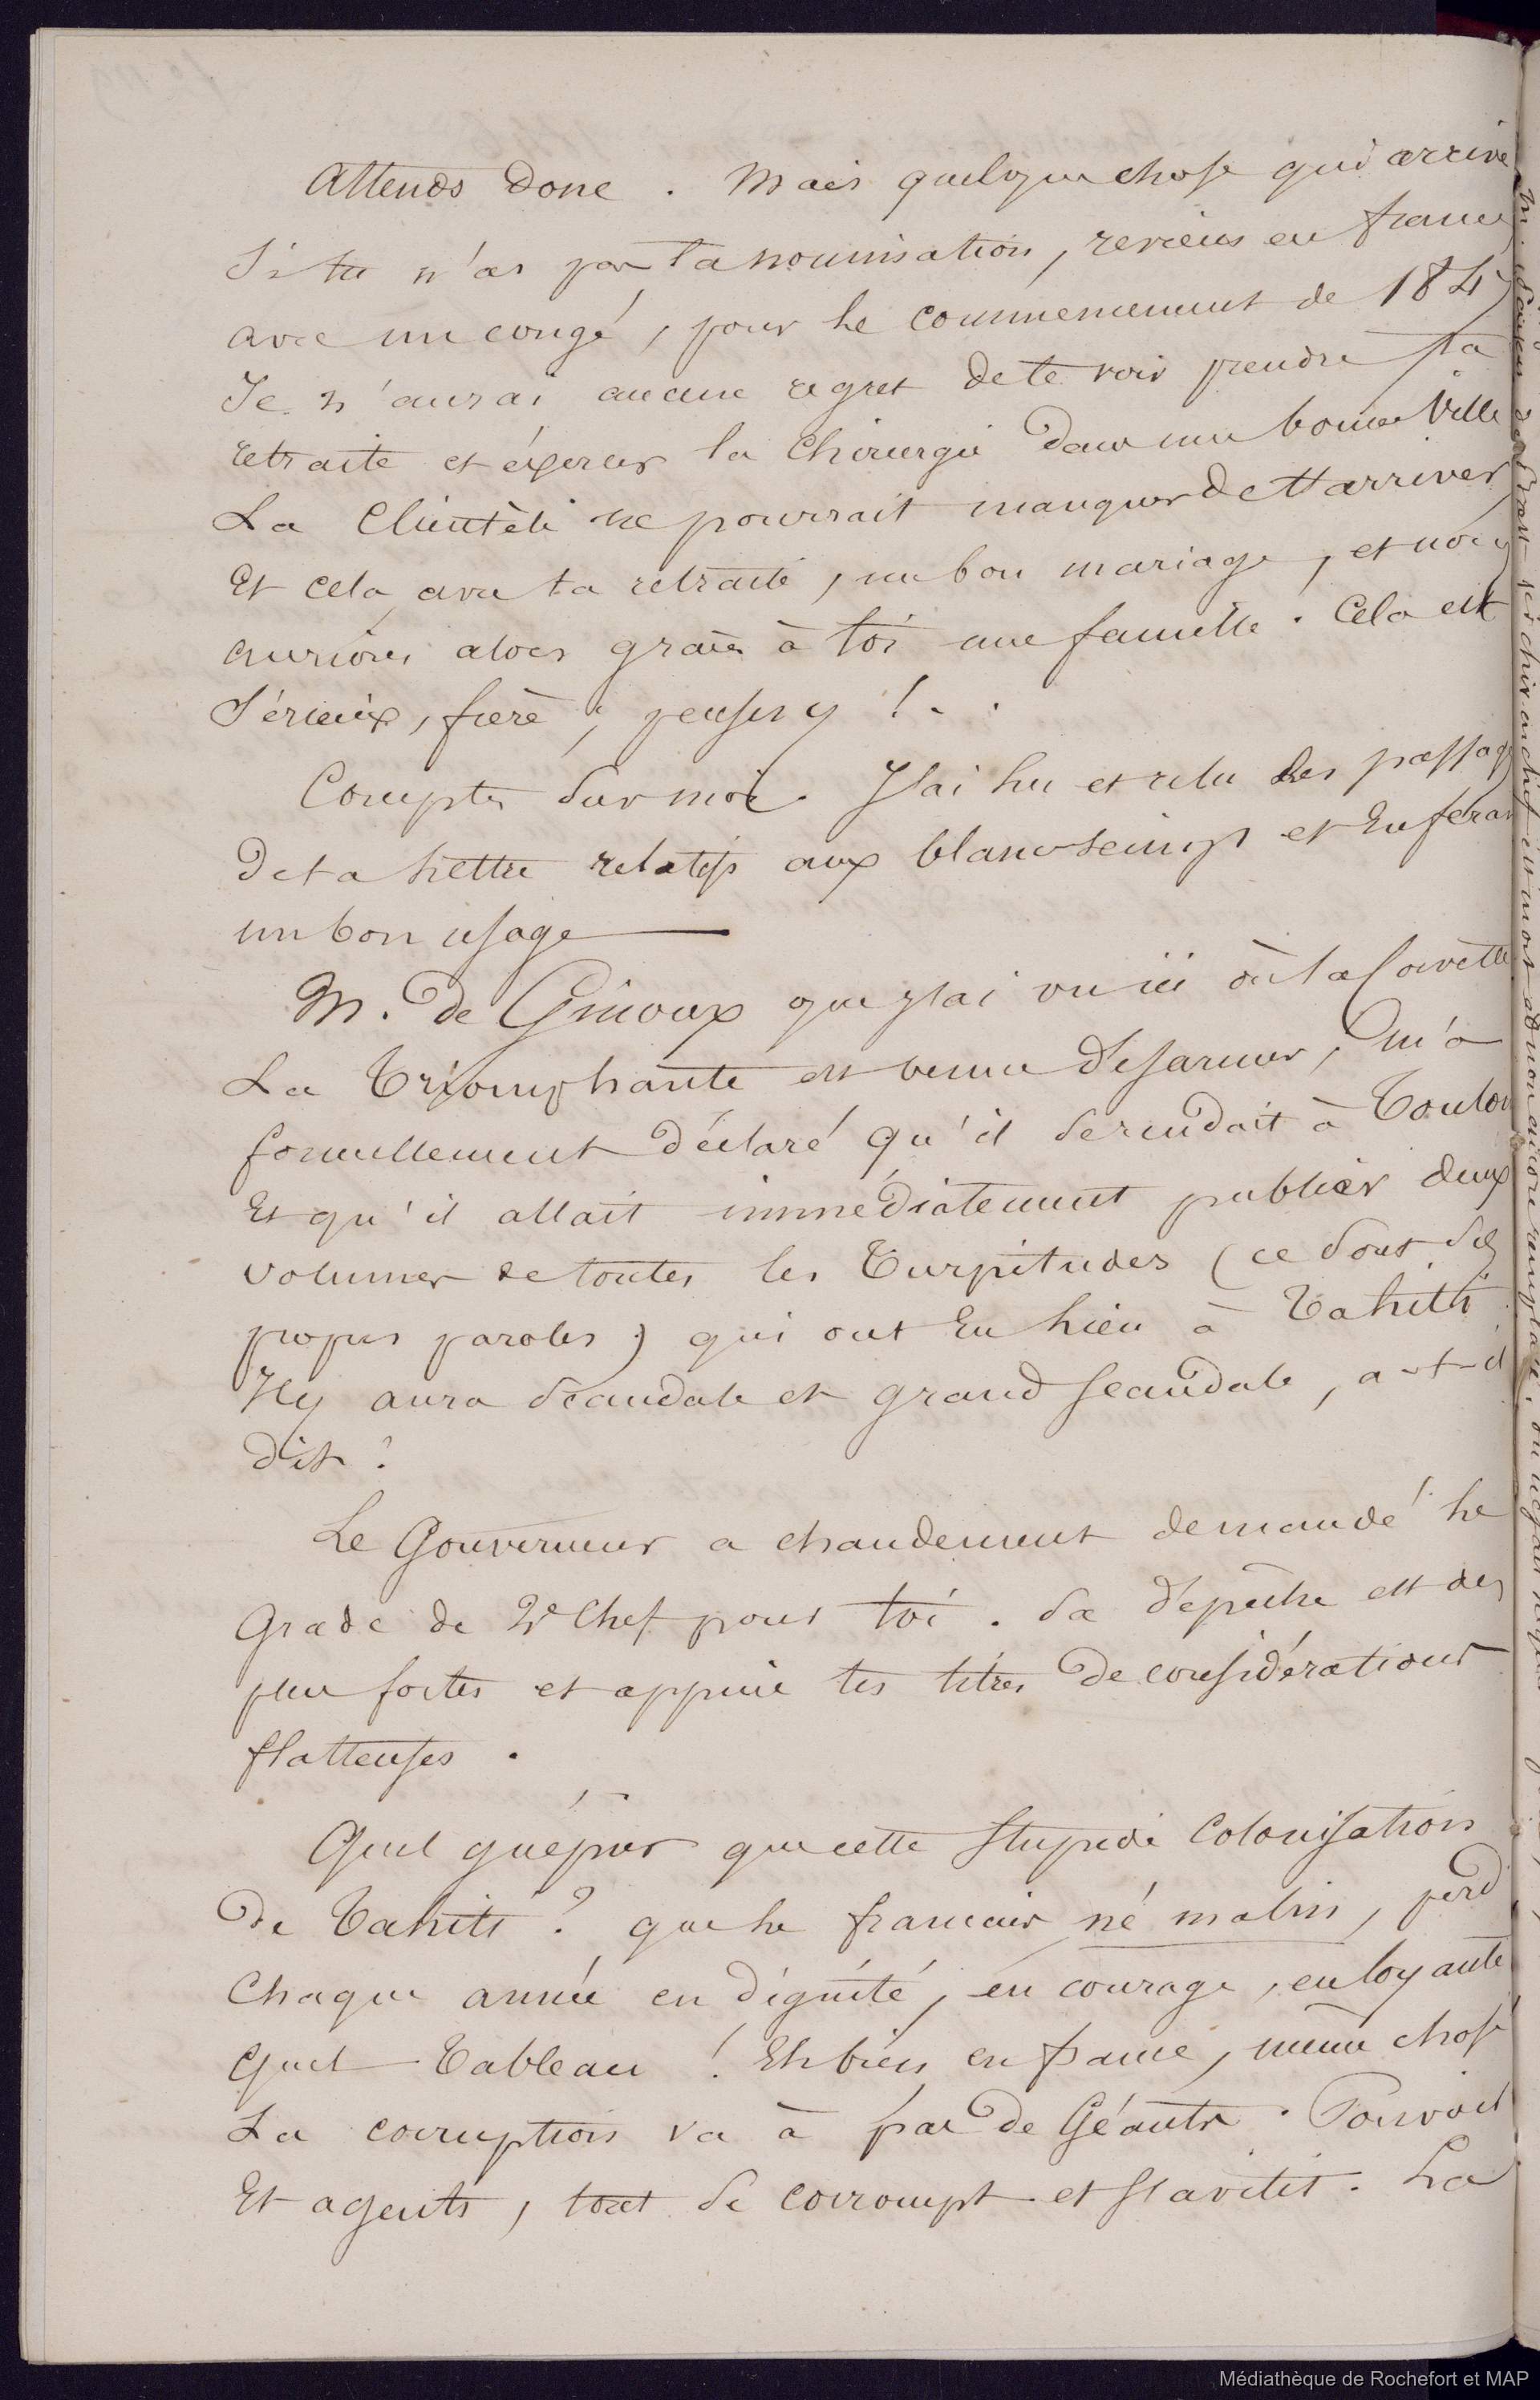 Attends donc. Mais quelque chose qui arrive
Si tu n'as pas ta nomination, reviens en france
avec un congé, pour le commencement de 184
Je n'aurai aucun regret de te voir prendre ta
retraite et éxercer la Chirurgie dans une bonne Ville
La Clientèle ne pourrait manquer de t'arriver,
Et cela, avec ta retraite, un bon mariage, et nous
aurions alors grâce à toi une famille. Cela est
Sérieux, frère ; penses y !..
Compte sur moi. J'ai lu et relu les passag
de ta lettre relatifs aux blanc-seings et En ferai
un bon usage —
M. de Ginoux que j'ai vu ici où la Corvette
La Triomphante est venue désarmer, m'a
formellement déclaré qu'il se rendait à Toulon
Et qu'il allait immédiatement publier deux
volumes de toutes les Turpitudes (ce sont ses
propres paroles) qui ont Eu lieu à Tahiti
Il y aura Scandale et grand Scandale, a-t-il
dit !
Le Gouverneur a chaudement demandé le
Grade de 2e Chef pour toi. Sa dépêche est des
plus fortes et appuie tes titres de considérations
flatteuses.
Quel guêpier que cette Stupide Colonisation
de Tahiti ? que le francais né malin, perd
Chaque année en dignité, en courage, en loyauté
Quel Tableau ! Eh bien en france, même chose
La corruption va à pas de Géants. Pouvoir
Et agents, tout se corrompt et s'avilit. La
Médiathèque de Rochefort et MAP